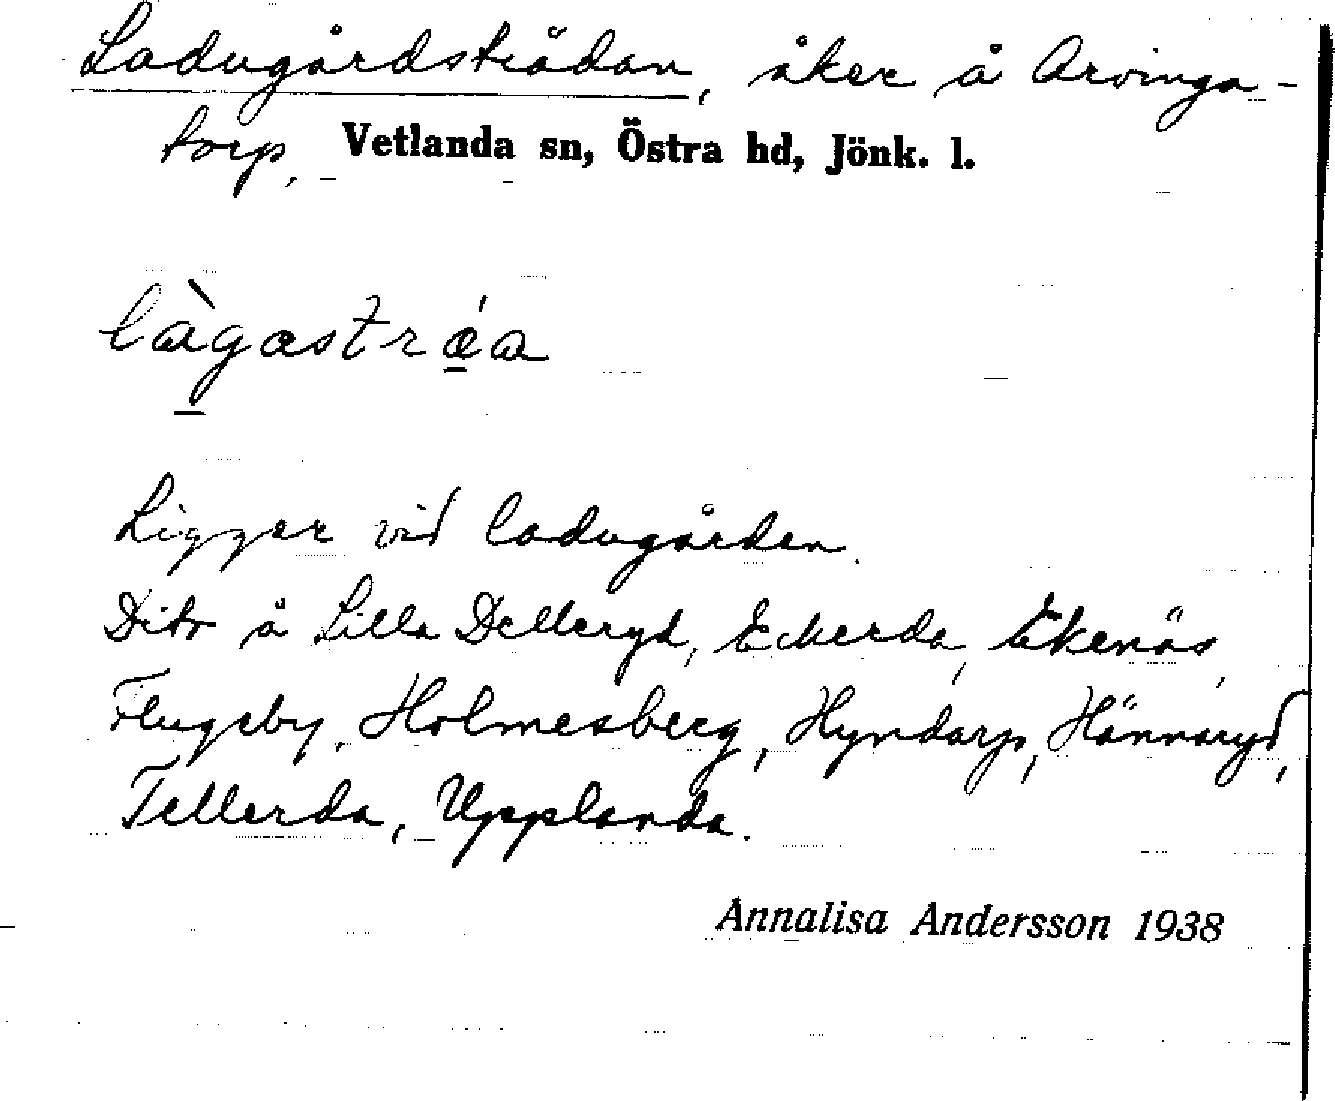 Ladugårdsträdan, åker å Arvinga-
torp. Vetlanda sn, Östra hd, Jönk. l.
làgastrǽa
Ligger vid ladugården.
Dito å Lilla Delleryd, Eckerda, Ekenäs,
Flugeby, Holmesberg, Hyndarp, Hännaryd,
Tellerda, Upplanda.
Annalisa Andersson 1938